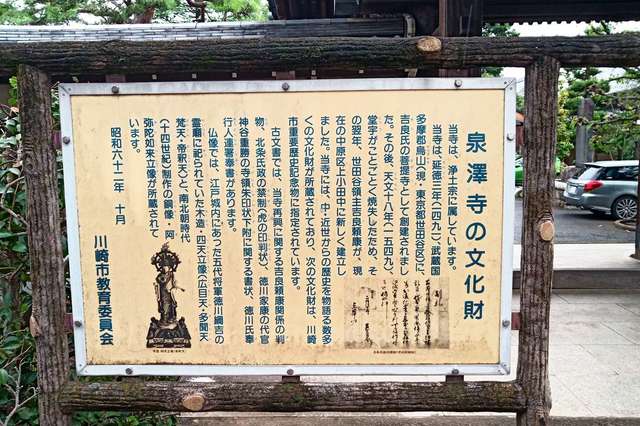 泉澤寺の文化財
当寺は、浄土宗に属しています。
当寺は、延徳三年(一四九一)、武蔵国
多摩郡烏山(現・東京都世田谷区)に、
吉良氏の菩提寺として創建されまし
た。その後、天文十八年(一五四九)、
堂宇がことごとく焼失したため、そ
の翌年、世田谷領主吉良頼康が、現
在の中原区上小田中に新しく建立し
ました。当寺には、中・近世からの歴史を物語る数多
くの文化財が所蔵されており、次の文化財は、川崎
市重要歴史記念物に指定されています。
古文書では、当寺再興に関する吉良頼康関係の判
物、北条氏政の禁制(虎の印判状)、徳川家康の代官
神谷重勝の寺領朱印状下附に関する書状、徳川氏奉
行人連署奉書があります。
仏像では、江戸城内にあった五代将軍徳川綱吉の
霊廟に祀られていた木造・四天立像(広目天・多聞天
梵天・帝釈天)と、南北朝時代
(十四世紀)制作の銅像・阿
弥陀如来立像が所蔵されて
います。
昭和六十二年 十月
川崎市教育委員会